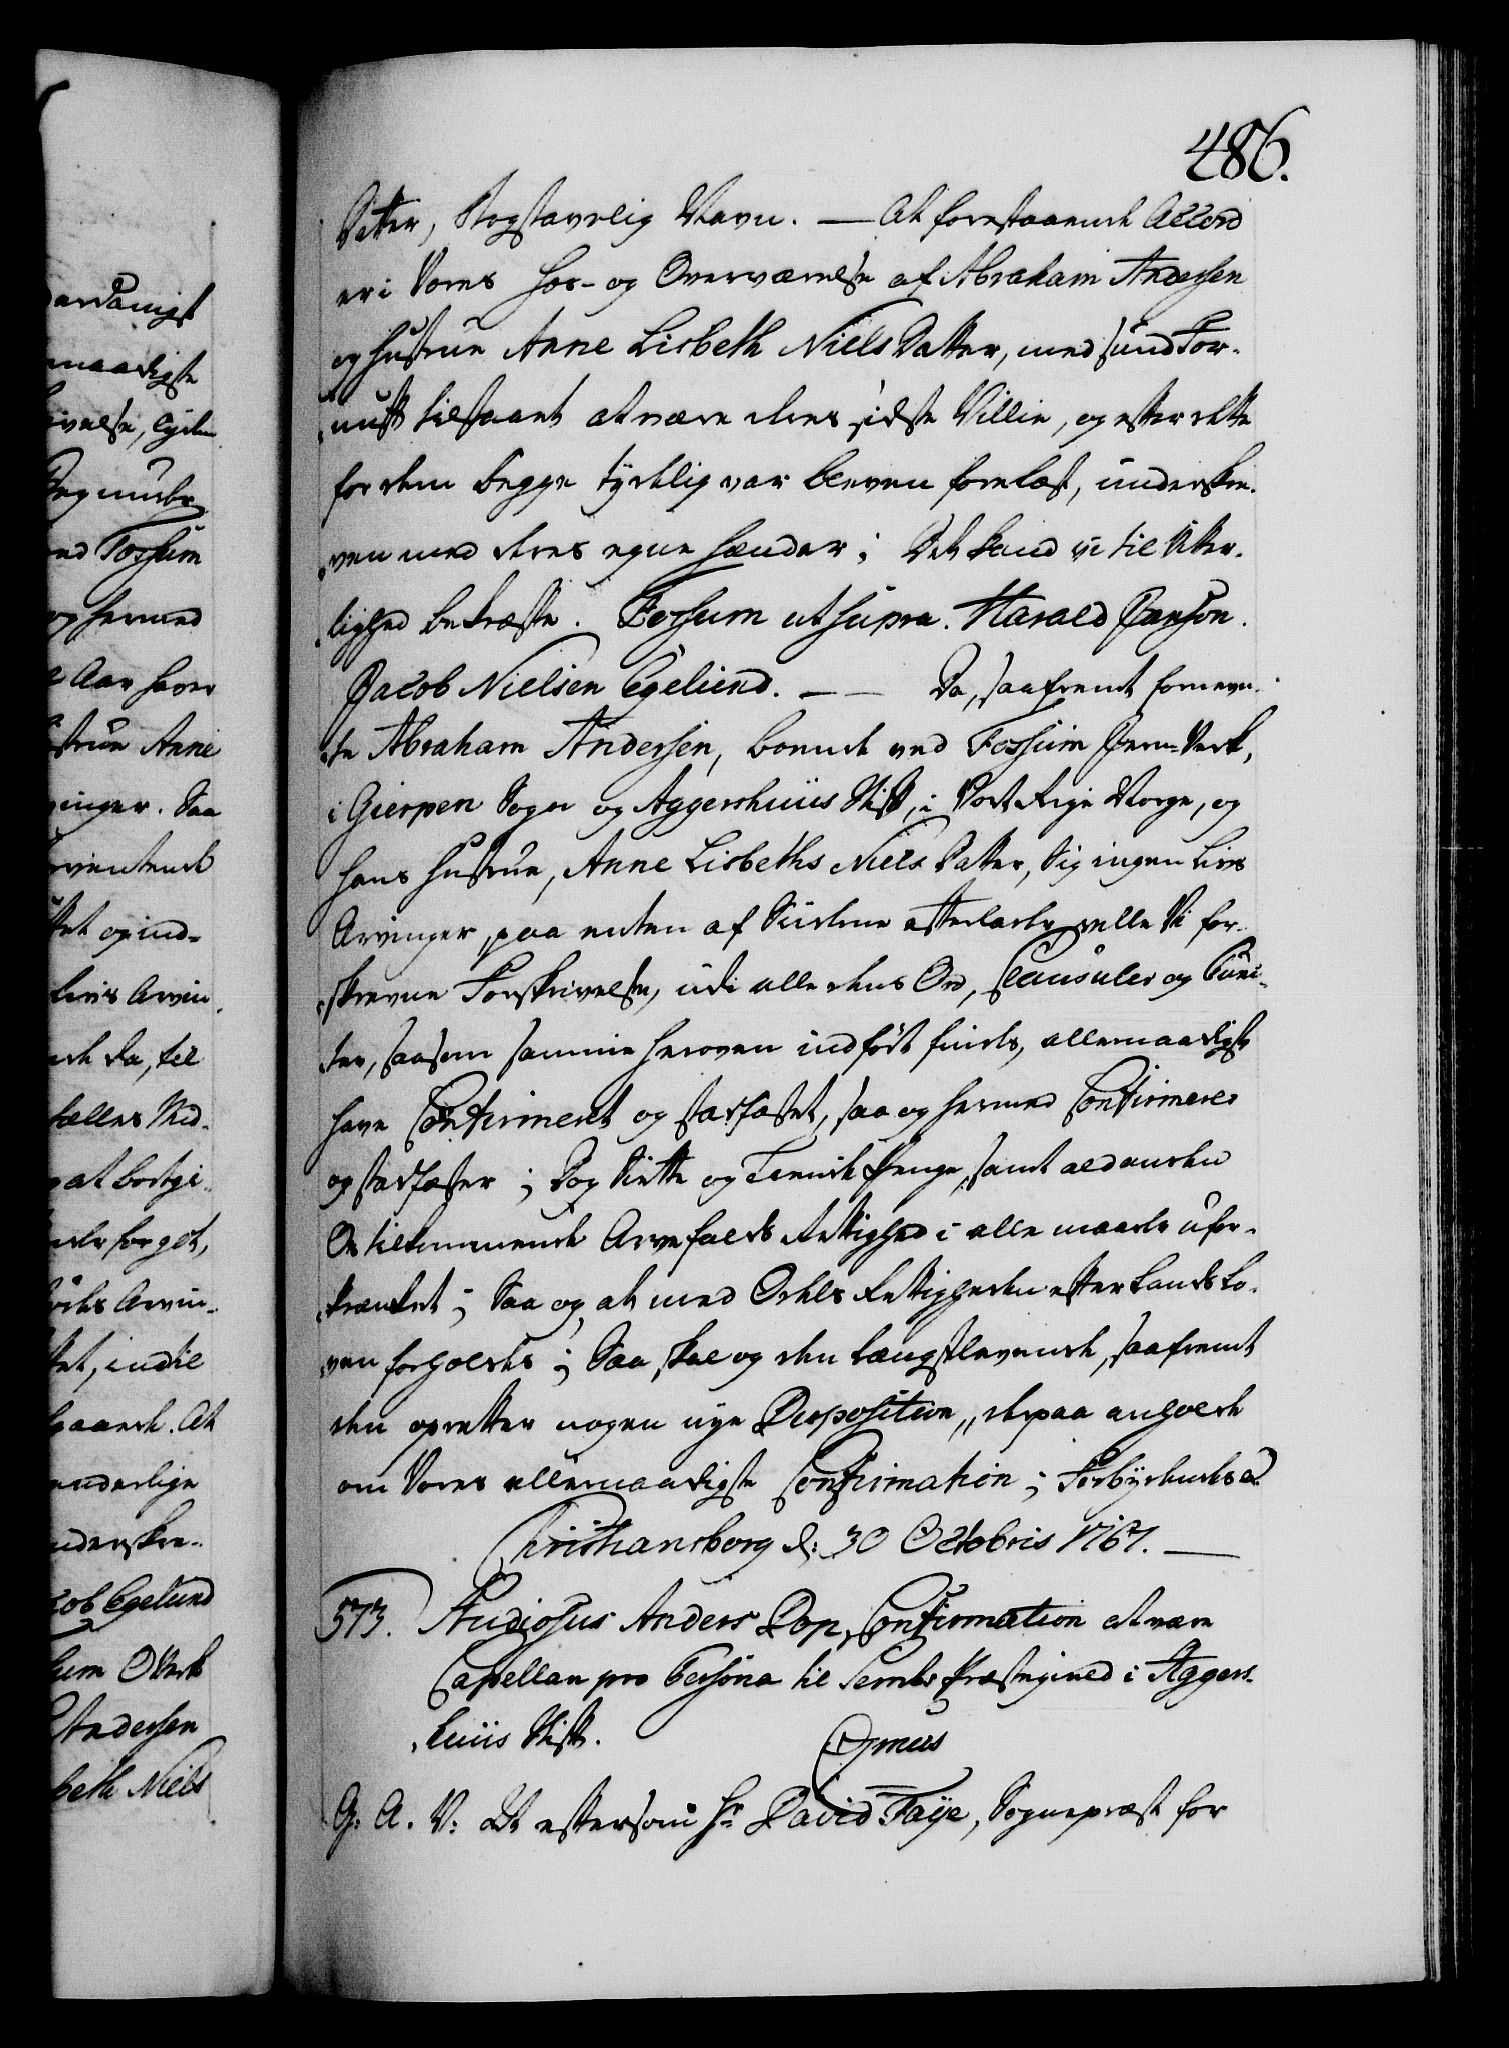 486.
Datter, Bogstavelig Navn. — At forestaaende Accord
er i Vores Hos- og Overværelse af Abraham Andersen
og Hustrue Anne Lisbeth Niels Datter, med sund For-
nuft tilstaaet at være deres sidste Villie, og efter dette
for dem begge tydelig var bleven forelæst, underskre-
ven med deres egne Hænder; Det kand vi til Vitter-
lighed bekræfte. Fossum ut supra. Harald Jansson.
Jacob Nielsen Egelund. — — Da, saafremt fornevn-
te Abraham Andersen, boende ved Fossum Jern-Verk,
i Gierpen Sogn og Aggershuus Stift, i Vort Rige Norge, og
hans Hustrue, Anne Lisbeths Niels Datter, sig ingen Livs
Arvinger, paa enten af Siderne efterlade, ville Vi for-
skrevne Forskrivelse, udi alle dens Ord, Clausuler og Punc-
ter, saasom samme heroven indført findes, allernaadigst
have Confirmeret og stadfæstet, saa og hermed Confirmerer
og stadfæster; Dog Siette og Tiende Penge, samt al anden
Os tilkommende Arvefalds Rettighed i alle maader ufor-
krænket; Saa og, at med Odels Rettigheden efter Lands Lo-
ven forholdes; Saa skal og den længstlevende, saafremt
den opretter nogen nye Disposition, derpaa anholde
om Vores allernaadigste Confirmation; Forbydendes &c.
Christiansborg d: 30 Octobris 1767. —
573. Studiosus Anders Dop, Confirmation at være
Capellan pro Persona til Sembs Præstegield i Aggers-
huus Stift.
G. A. V: At eftersom Hr David Faÿe, Sognepræst for